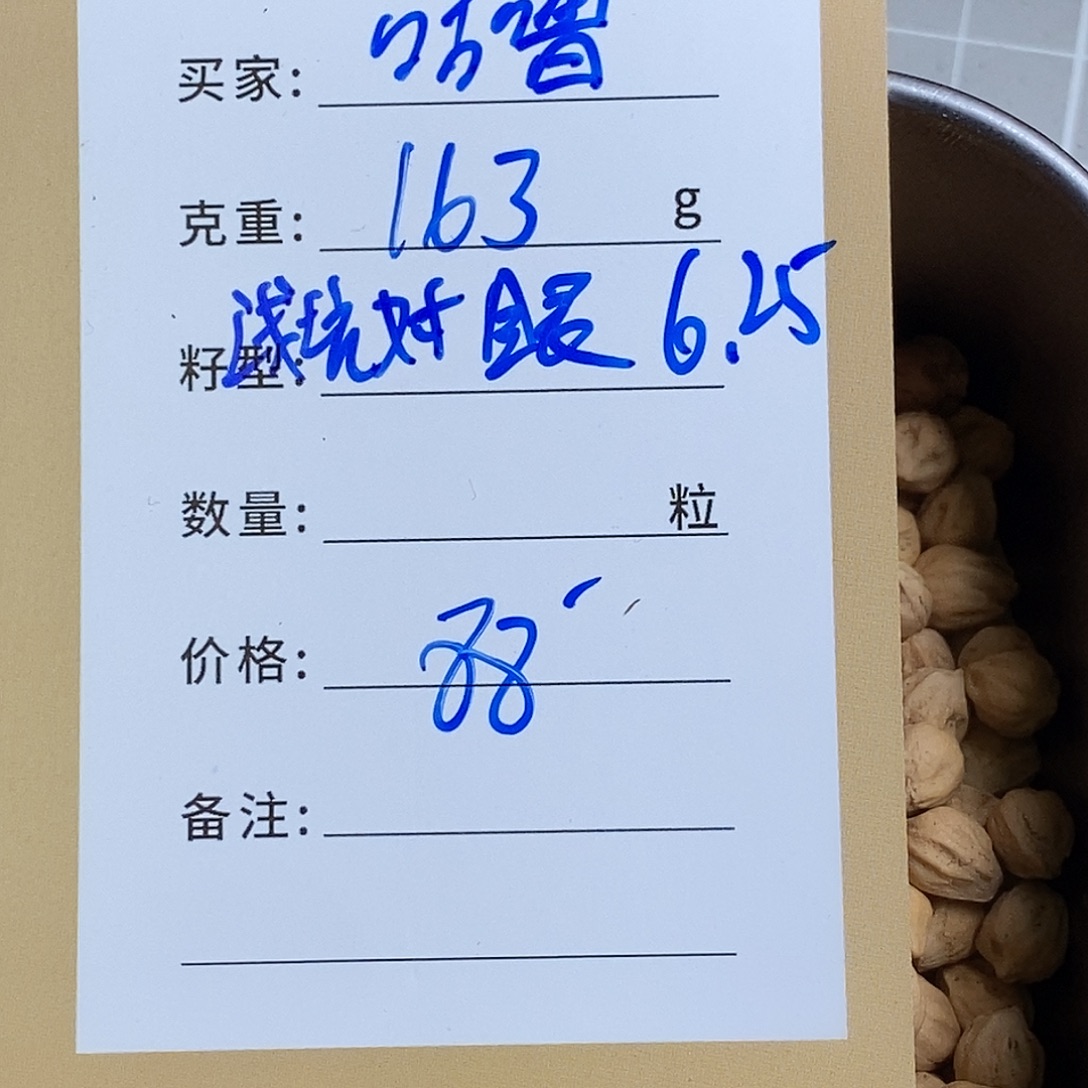 买家: 咕噜
克重: 163 g
籽型: 浅坑对眼 6.25
数量: 粒
价格: 88
备注: